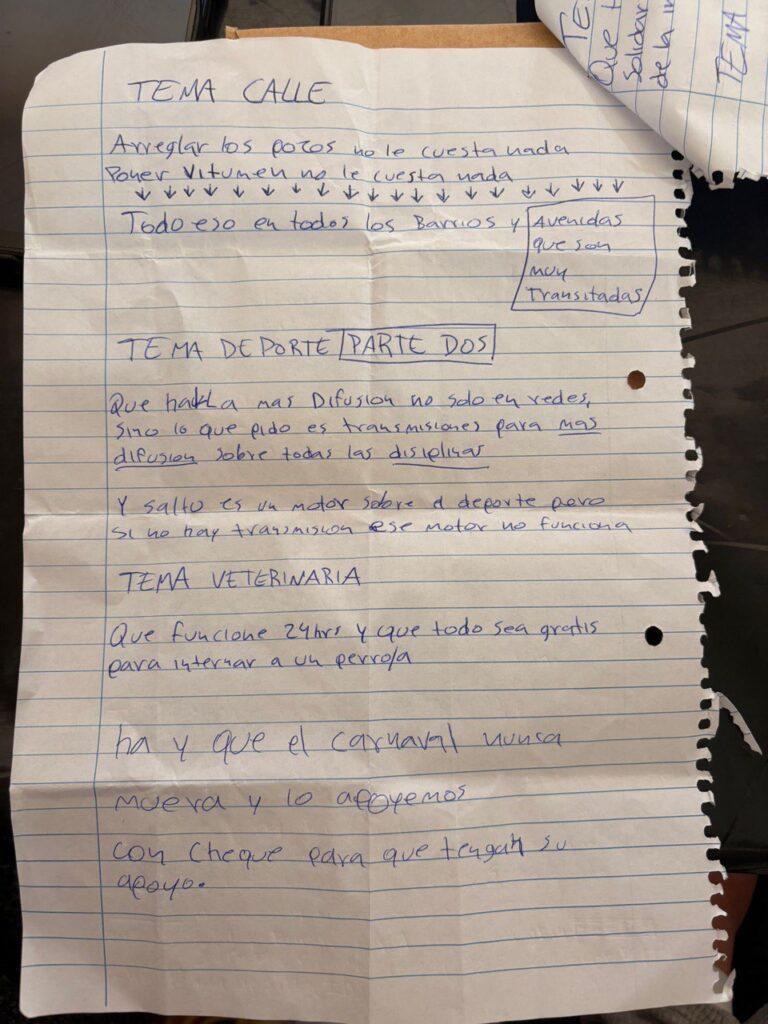 TEMA CALLE
Arreglar los pozos no le cuesta nada
Poner Vitumen no le cuesta nada
↓ ↓ ↓ ↓ ↓ ↓ ↓ ↓ ↓ ↓ ↓ ↓ ↓ ↓ ↓ ↓ ↓ ↓ ↓ ↓
Todo eso en todos los Barrios y Avenidas
que son
muy
Transitadas
TEMA DEPORTE PARTE DOS
Que mas Difusion no solo en redes,
sino lo que pido es transmisiones para mas
difusion sobre todas las disiplinas
Y salto es un motor sobre el deporte pero
si no hay transmision ese motor no funciona
TEMA VETERINARIA
Que funcione 24hrs y que todo sea gratis
para internar a un perro/a
ha y que el carnaval nunsa
muera y lo apoyemos
con cheque para que tengan su
apoyo.
TE
Que
Solidar
de la in
TEMA